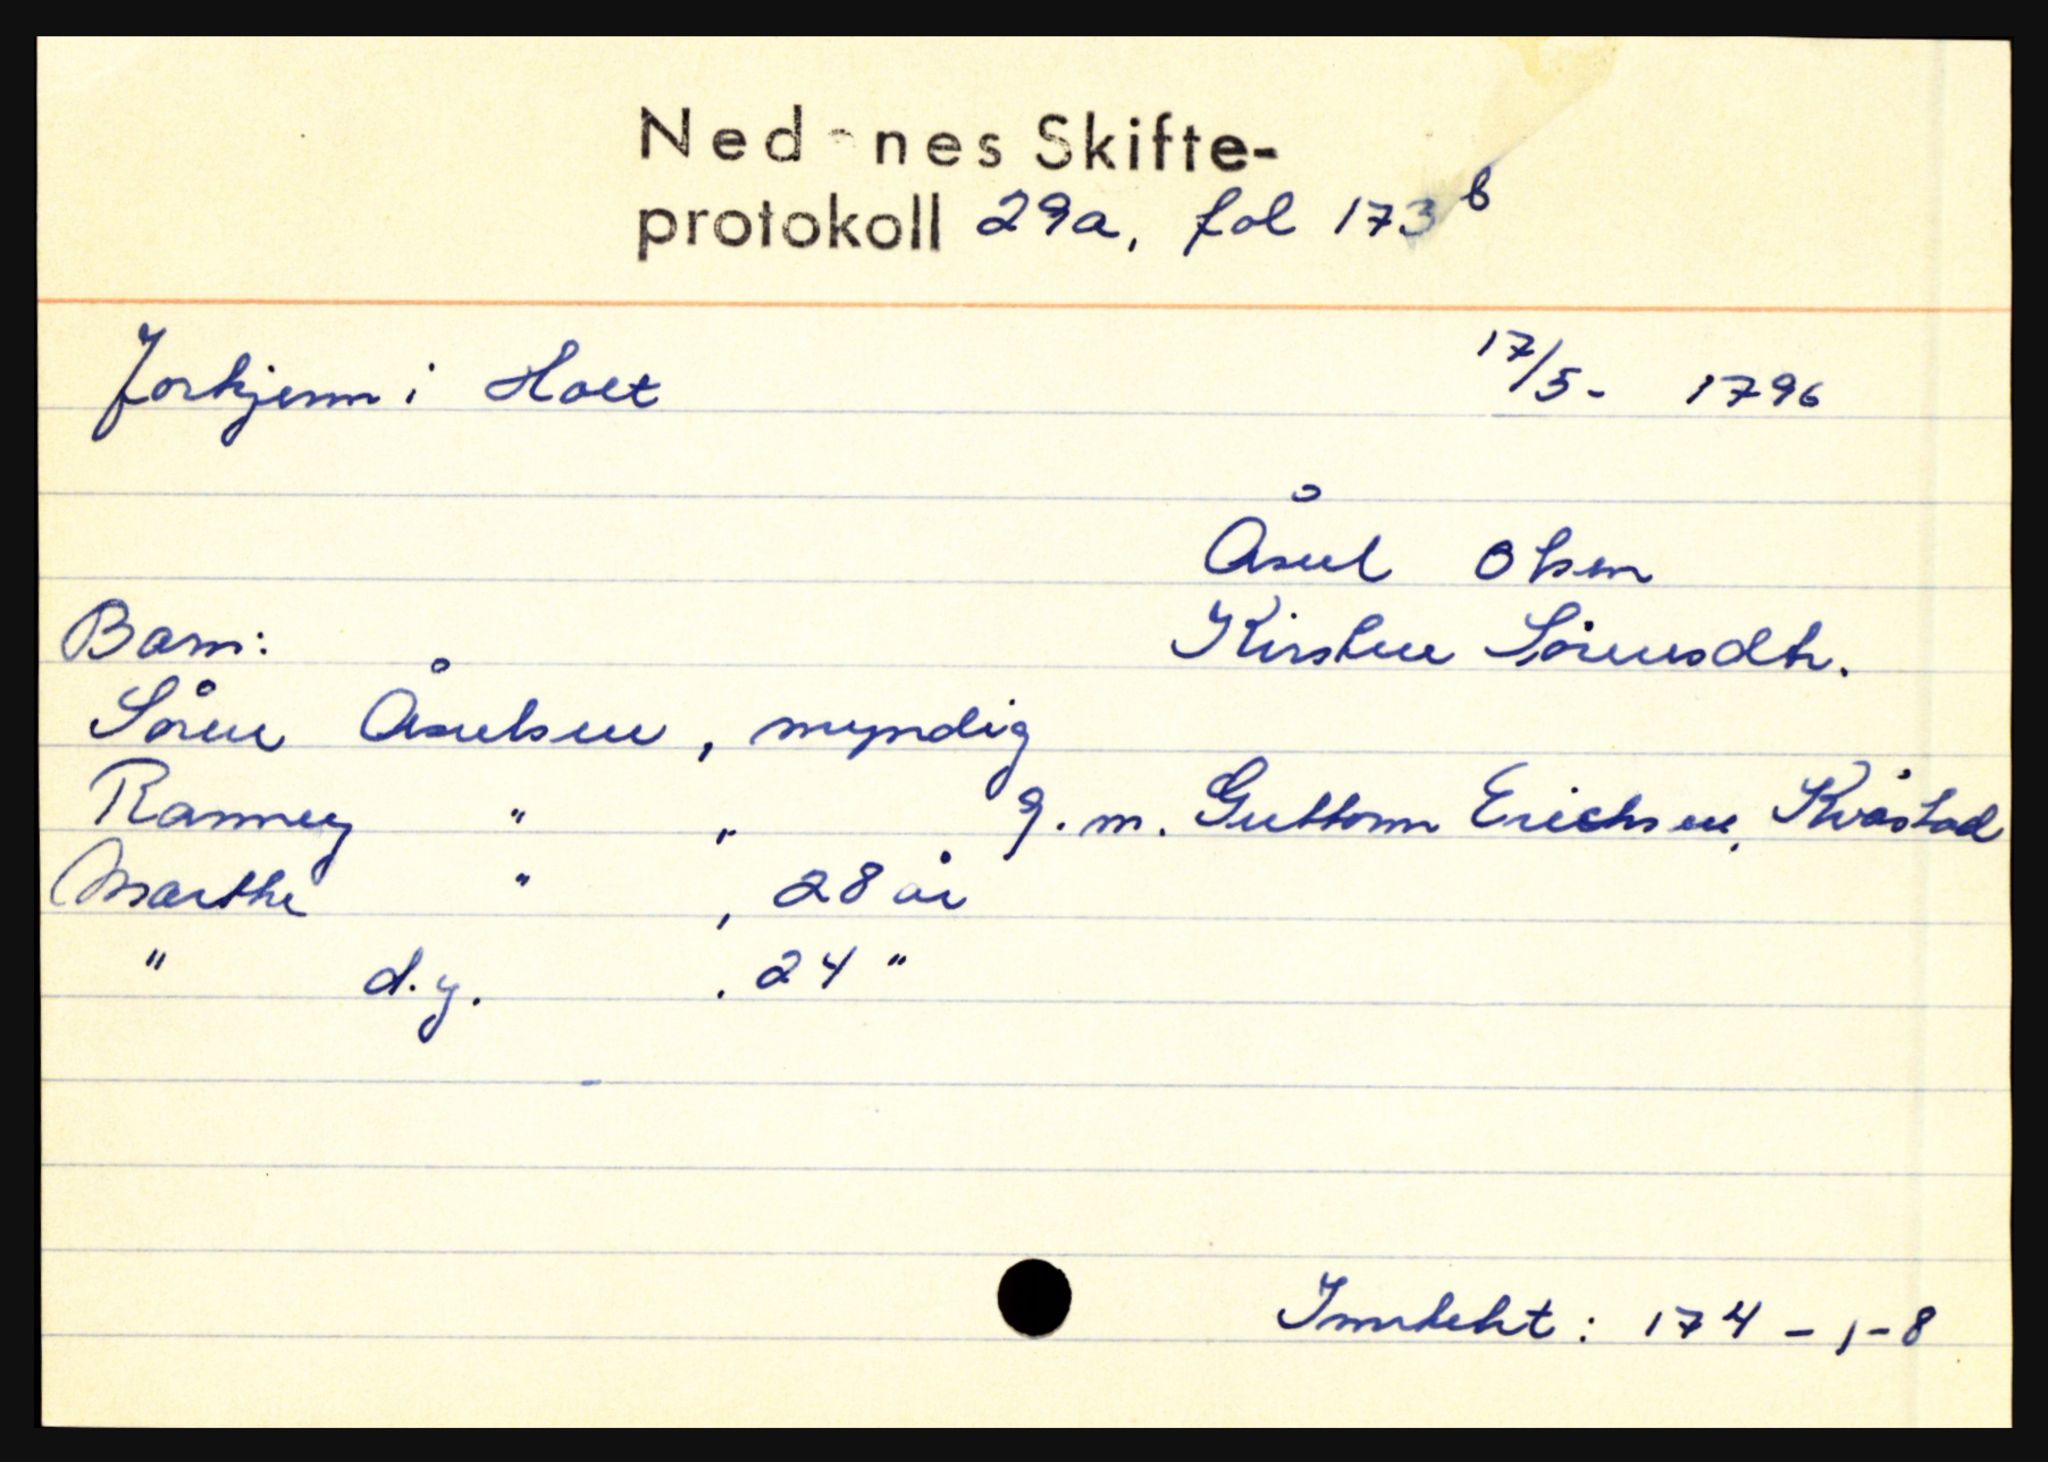 Nedenes Skifte-
protokoll 29a, fol 173 b
Forkjenn i Holt 17/5- 1796
Åsul Olsen
Barn: Kirsten Sørensdtr.
Søren Åsulsen, myndig
Ranney " " g.m. Guttorm Erichsen, Kvåstad
Marthe " , 28 år
" d.y. . 24 "
Inntekt: 174 - 1 - 8